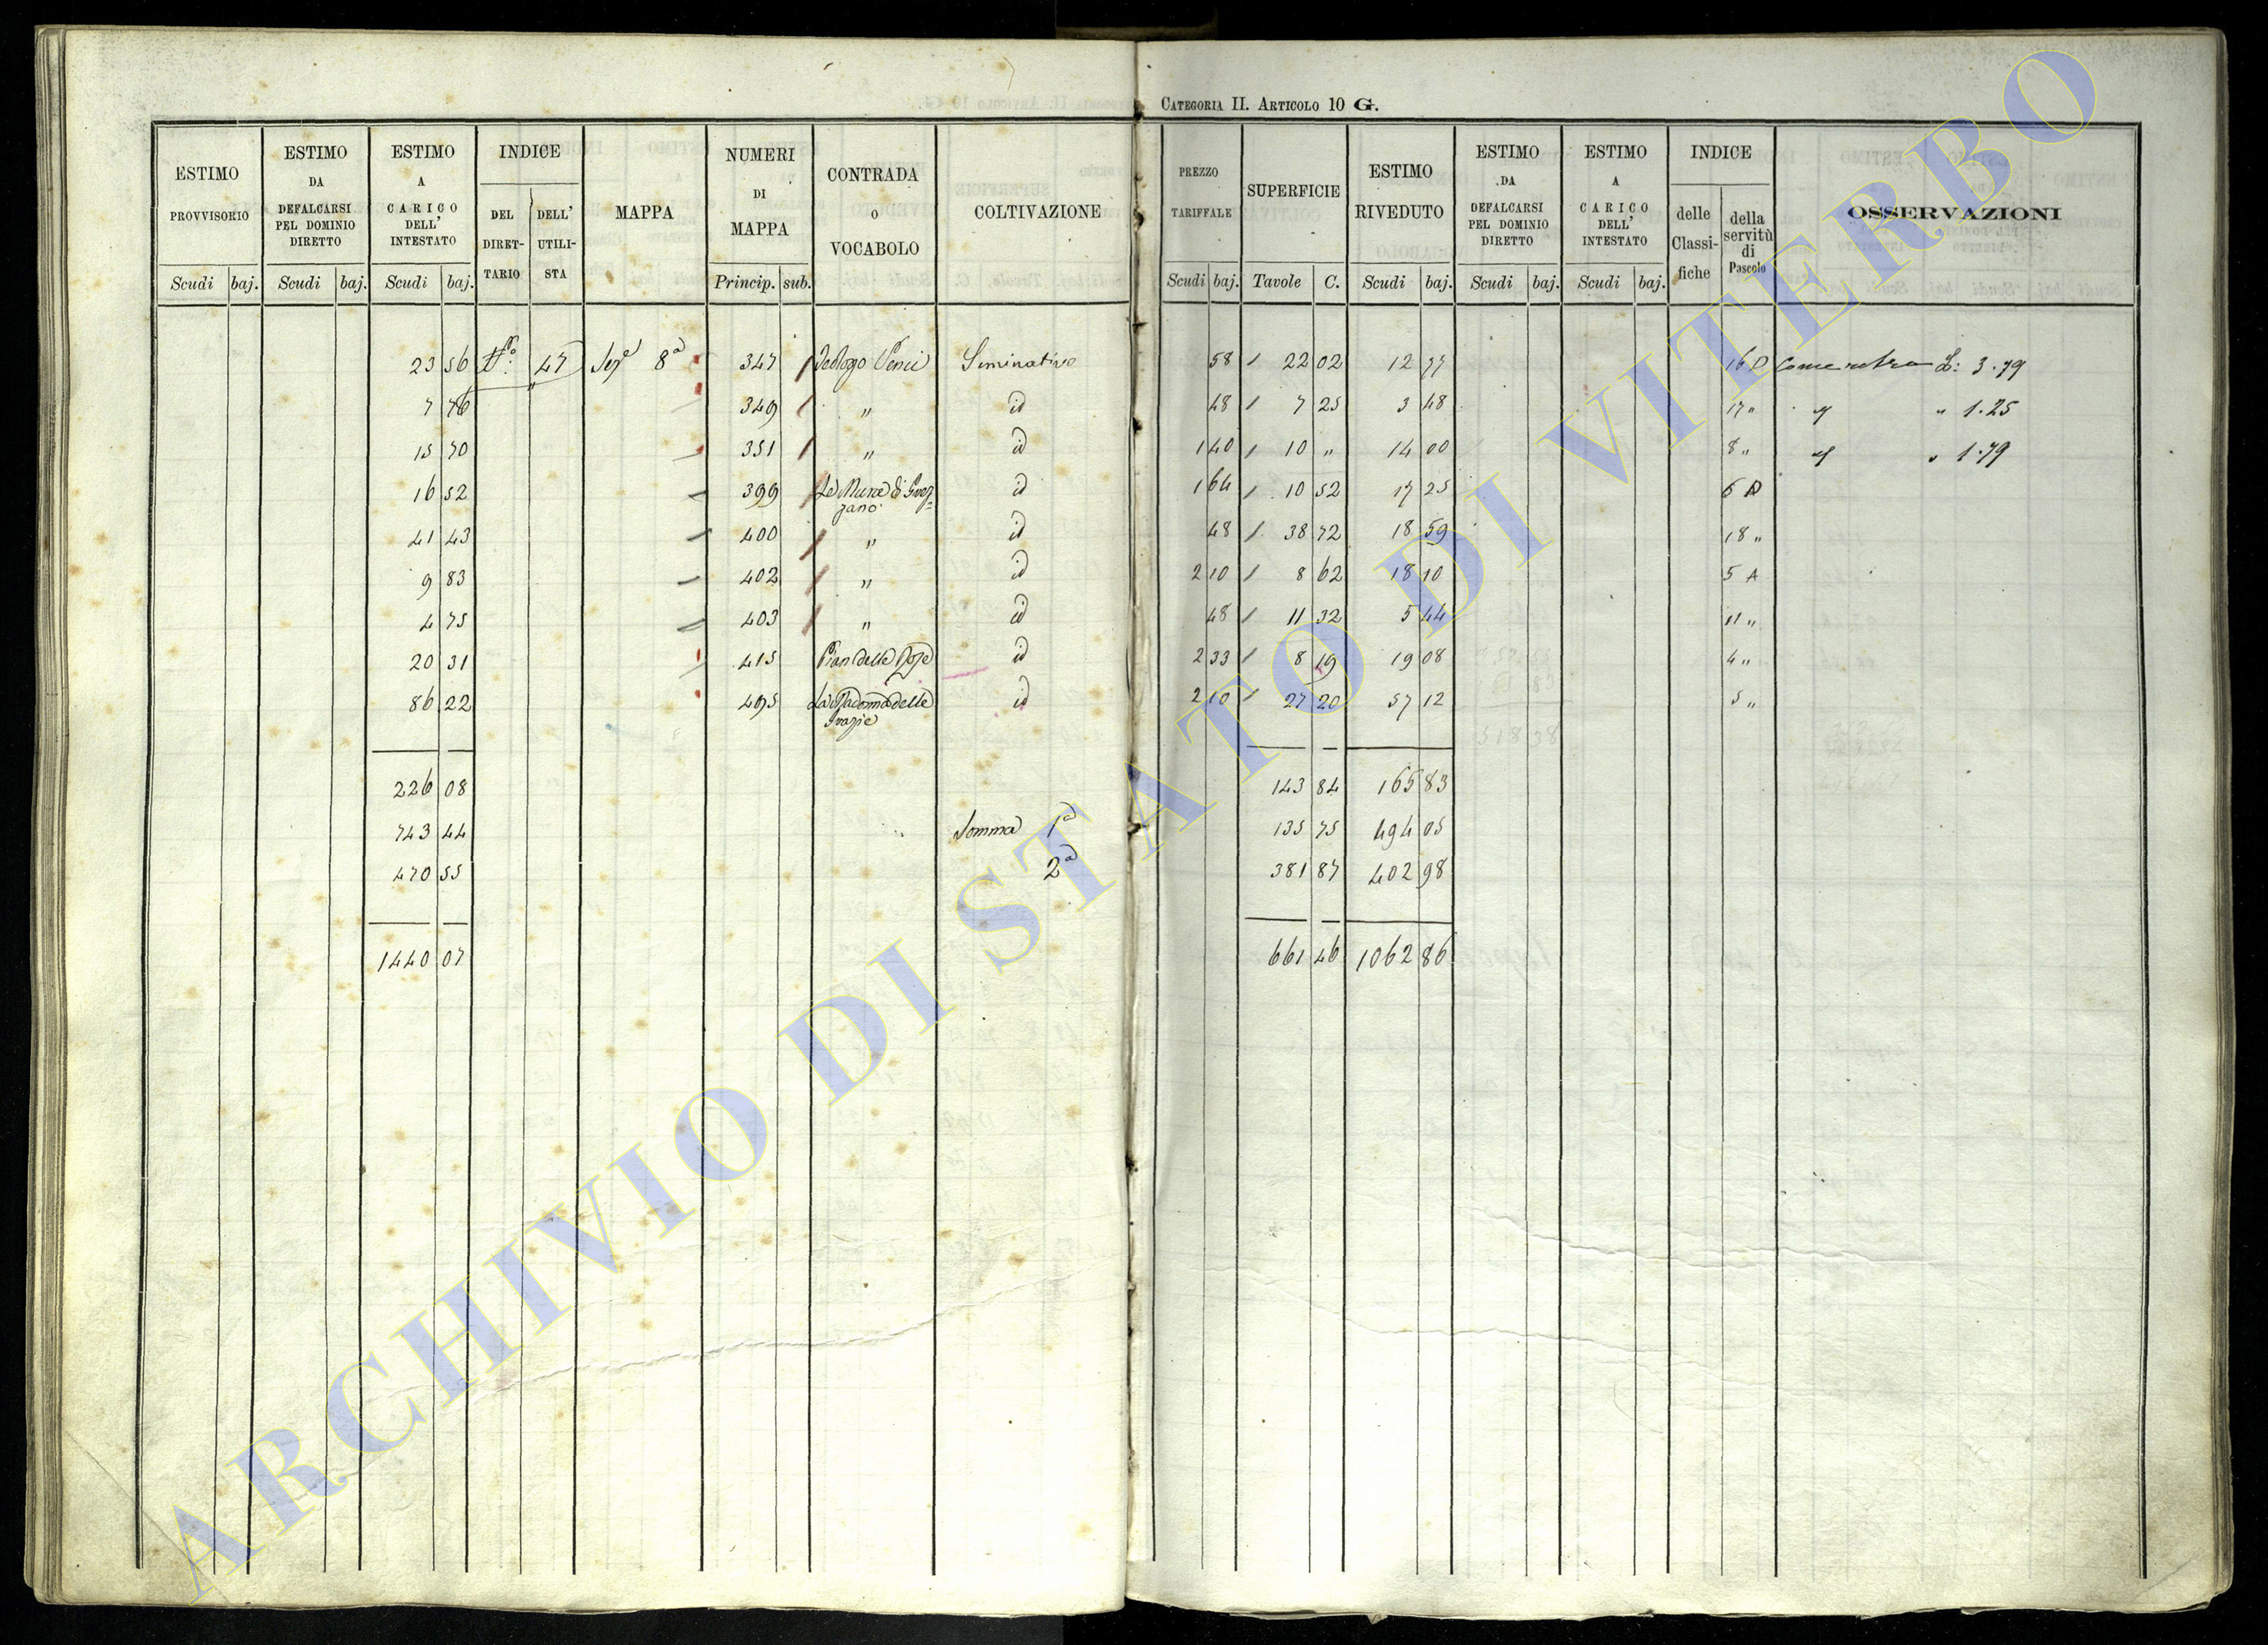 CATEGORIA II. ARTICOLO 10 G.
ESTIMO PROVVISORIO Scudi baj.
ESTIMO DA DEFALCARSI PEL DOMINIO DIRETTO Scudi baj.
ESTIMO A CARICO DELL' INTESTATO Scudi baj.
INDICE DEL DIRETTARIO DELL' UTILISTA
MAPPA
NUMERI DI MAPPA Princip. sub.
CONTRADA O VOCABOLO
COLTIVAZIONE
PREZZO TARIFFALE Scudi baj.
SUPERFICIE Tavole C.
ESTIMO RIVEDUTO Scudi baj.
ESTIMO DA DEFALCARSI PEL DOMINIO DIRETTO Scudi baj.
ESTIMO A CARICO DELL' INTESTATO Scudi baj.
INDICE delle Classifiche della servitù di Pascolo
OSSERVAZIONI
23 56 47 8ª 347 Seminativo 58 22 02 12 77 16 D Come retro L: 3.79
7 76 349 " id 48 7 25 3 48 17 " " " 1.25
15 70 351 " id 1 40 10 " 14 00 8 " " " 1.79
16 52 399 Le Mura di Grez=
zano id 1 64 10 52 17 25 6 A
41 43 400 " id 48 38 72 18 59 18 "
9 83 402 " id 2 10 8 62 18 10 5 A
4 75 403 " id 48 11 32 5 44 11 "
20 31 415 Pian delle id 2 33 8 19 19 08 4 "
86 22 495 La Madonna delle
Grazie id 2 10 27 20 57 12 5 "
226 08 143 84 165 83
743 44 Somma 1ª 135 75 494 05
470 55 2ª 381 87 402 98
1440 07 661 46 1062 86
ARCHIVIO DI STATO DI VITERBO